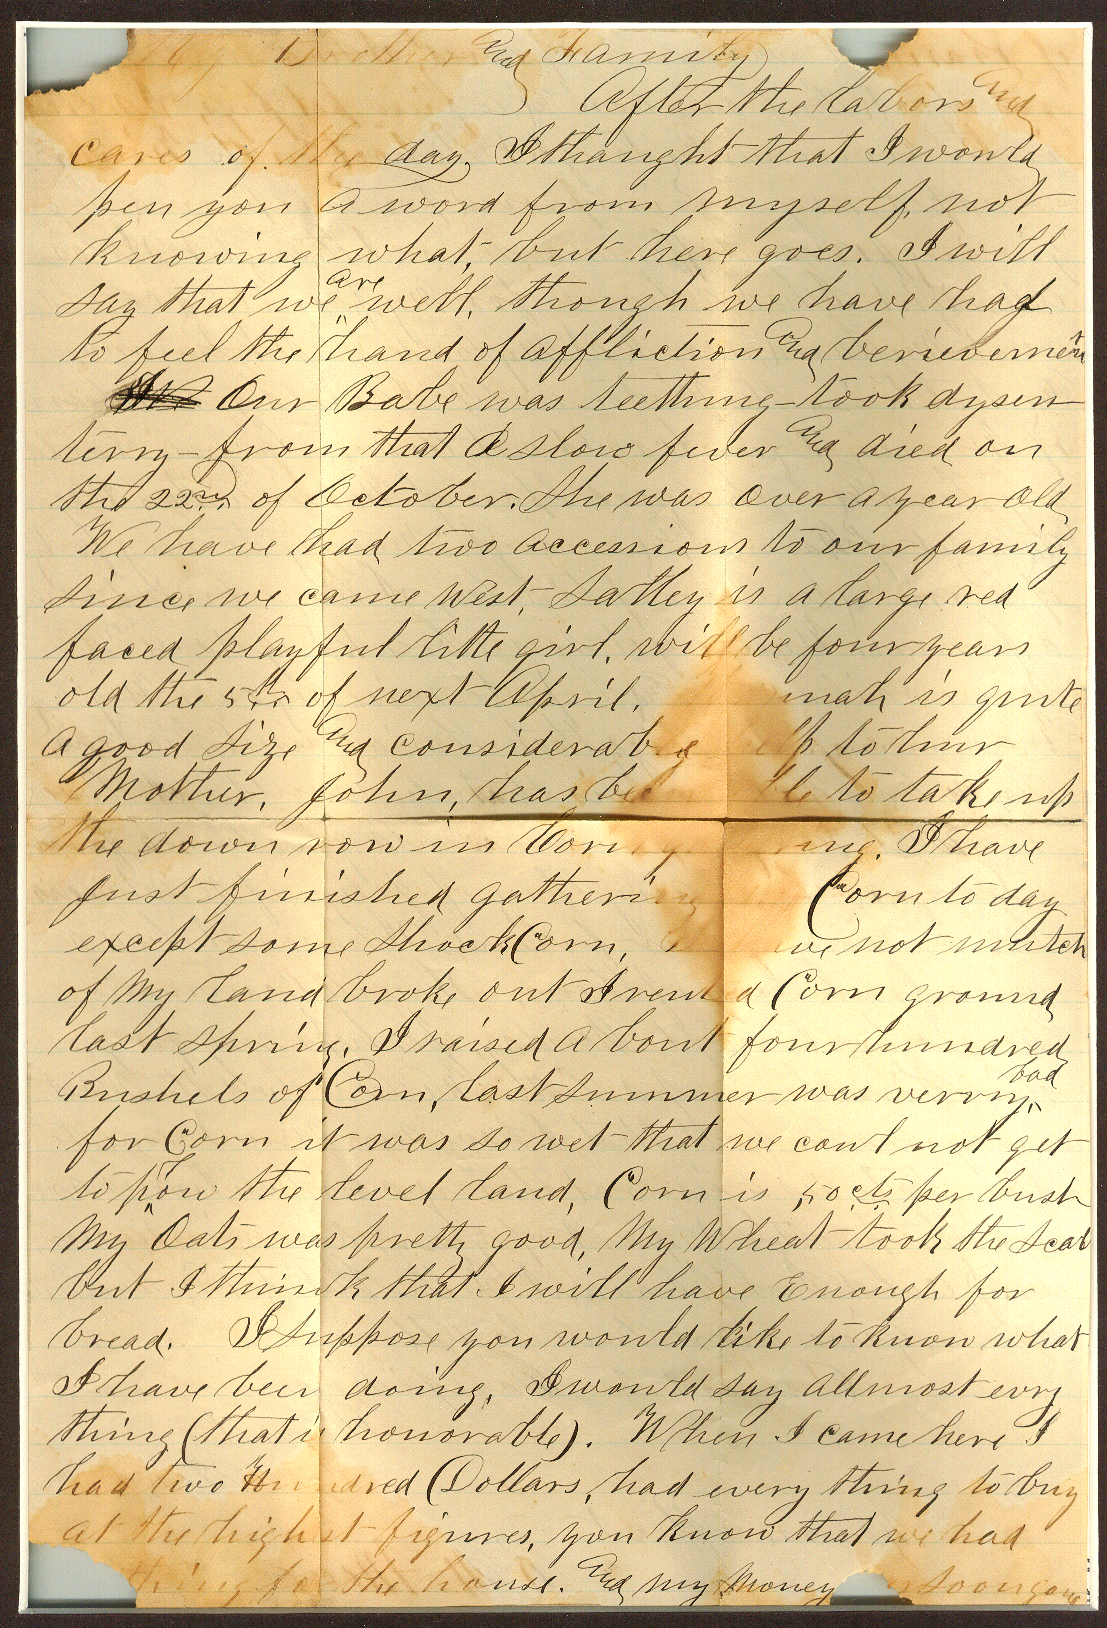 My Brother and Family
After the labors and
cares of the day, I thaught that I would
pen you a word from myself, not
knowing what, but here goes. I will
say that we are well, though we have had
to feel the hand of affliction and
Our Babe was teething took dysen
terry - from that a slow fever and died on
the 22nd of October. She was over a year old
We have had two accessions to our family
since we came West, Salley is a large red
faced playful little girl, will be four years
old the 5th of next April. mah is quite
a good size and considerable lp to hur
Mother. John, has be le to take up
the down row in Corn ing. I have
just finished gathering Corn to day
except some shock Corn, ve not mutch
of My land broke out I rent d Corn ground
last spring. I raised about four hundred
Bushels of Corn, last summer was verry bad
for Corn it was so wet that we coul not get
to plow the level land, Corn is 50 cts per bush
My Oats was pretty good, My Wheat took the scab
but I think that I will have Enough for
bread. I suppose you would like to know what
I have been doing, I would say allmost evry
thing (that is honorable). When I came here I
had two Hundred Dollars, had every thing to buy
at the highest figures, you know that we had
thing for the house. and my Money soon gone